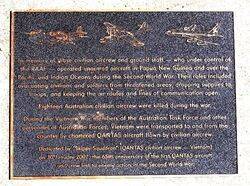 In memory of urban civilian aircrew and ground staff – who under control of
the RAAF – operated unarmed aircraft in Papua New Guinea and over the
Pacific and Indian Oceans during the Second World War. Their roles included
evacuating civilians and soldiers from threatened areas, dropping supplies to
troops, and keeping the air routes and lines of communication open.
Eighteen Australian civilian aircrew were killed during the war.
During the Vietnam War members of the Australian Task Force and other
personnel of Australian Forces, Vietnam were transported to and from the
country by chartered QANTAS aircraft flown by civilian aircrew.
Dedicated by "Skippy Squadron" (QANTAS civilian aircrew – Vietnam)
on 30 January 2007, the 65th anniversary of the first QANTAS aircraft
and crew lost to enemy action in the Second World War.